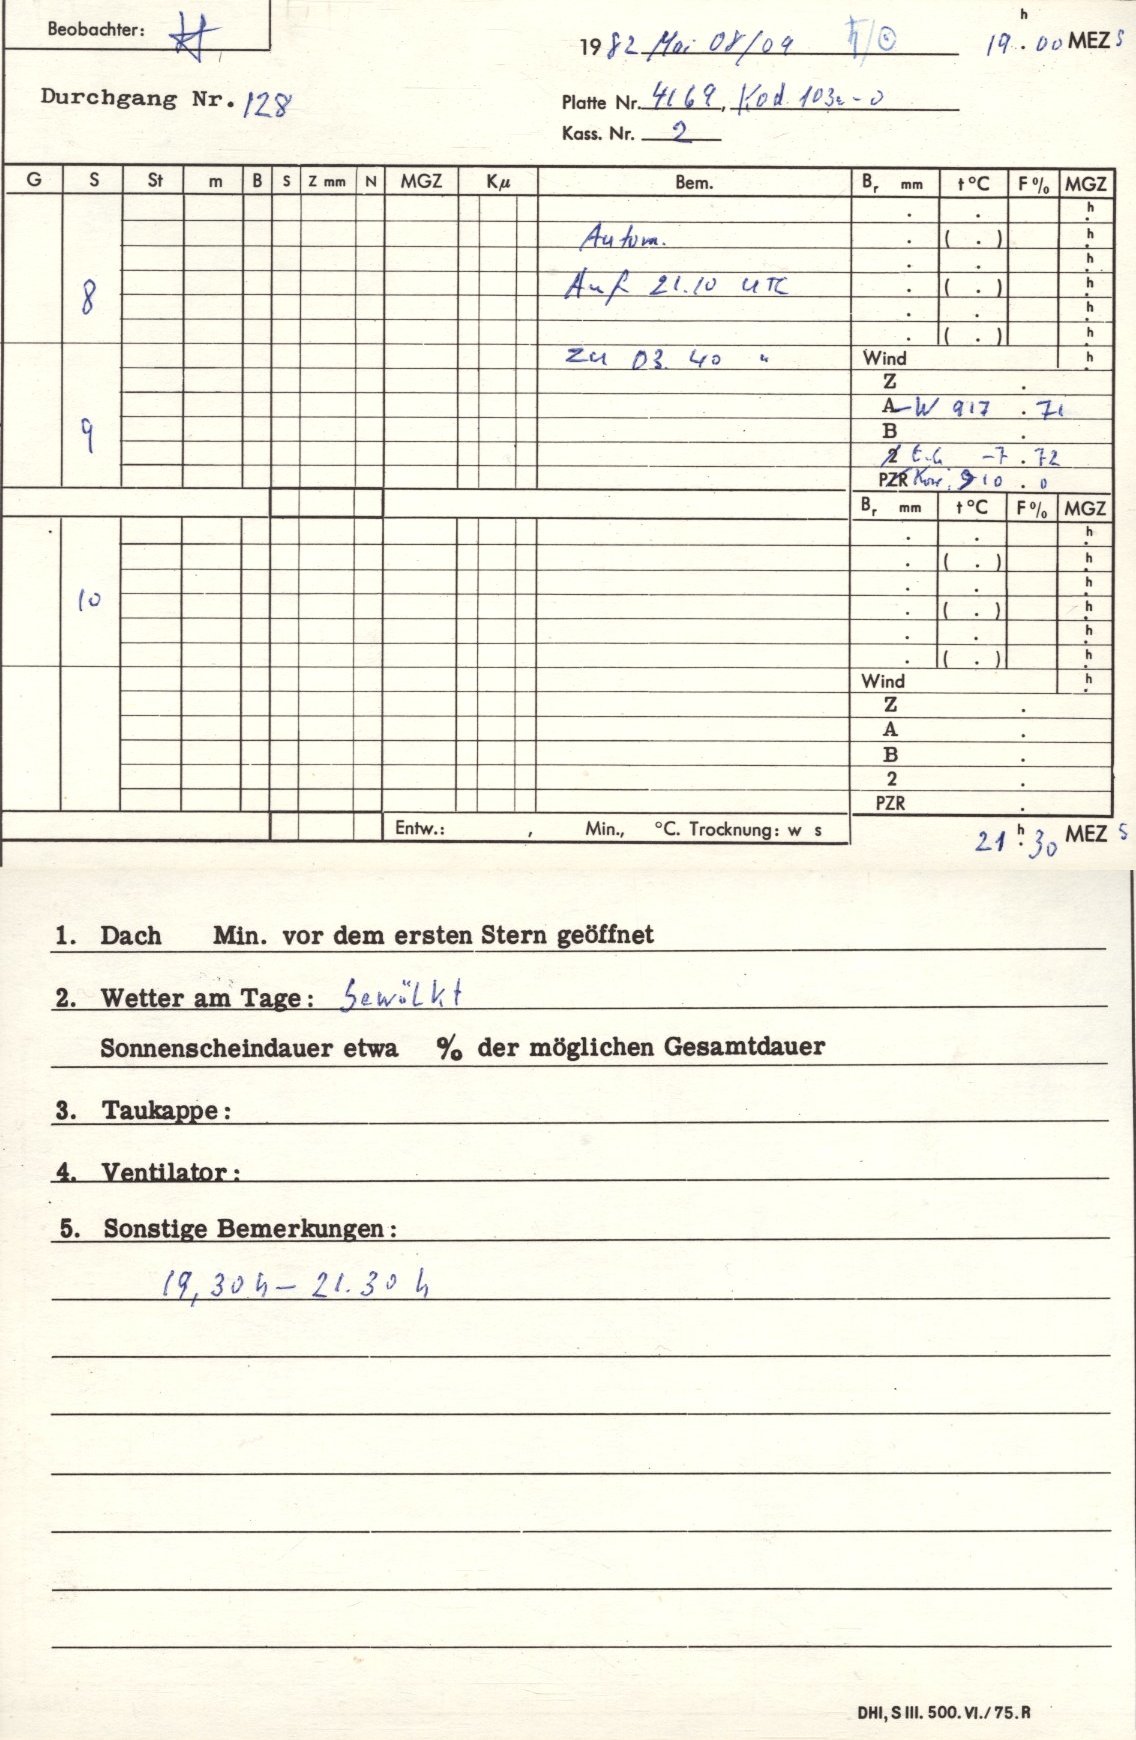 Beobachter:
h
1982 Mai 08/09 ♄/☉ 19.00 MEZ S
Durchgang Nr. 128
Platte Nr. 4169, Kod. 103a-O
Kass. Nr. 2
G S St m B S Z mm N MGZ Kμ Bem. Br mm t°C F% MGZ
. . h
Autom. . ( . ) h
. . h
8 Auf 21.10 UTC . ( . ) h
. . h
. ( . ) h
zu 03.40 " Wind h
Z .
A-W 917 . 71
9 B .
2 -7 . 72
PZR Korr. 910 . 0
Br mm t°C F% MGZ
. . h
. ( . ) h
. . h
10 . ( . ) h
. . h
. ( . ) h
Wind h
Z .
A .
B .
2 .
PZR .
Entw.: , Min., °C. Trocknung: w s
21 h 30 MEZ S
1. Dach Min. vor dem ersten Stern geöffnet
2. Wetter am Tage: bewölkt
Sonnenscheindauer etwa % der möglichen Gesamtdauer
3. Taukappe:
4. Ventilator:
5. Sonstige Bemerkungen:
19,30 h – 21.30 h
DHI, S III. 500. VI./75. R